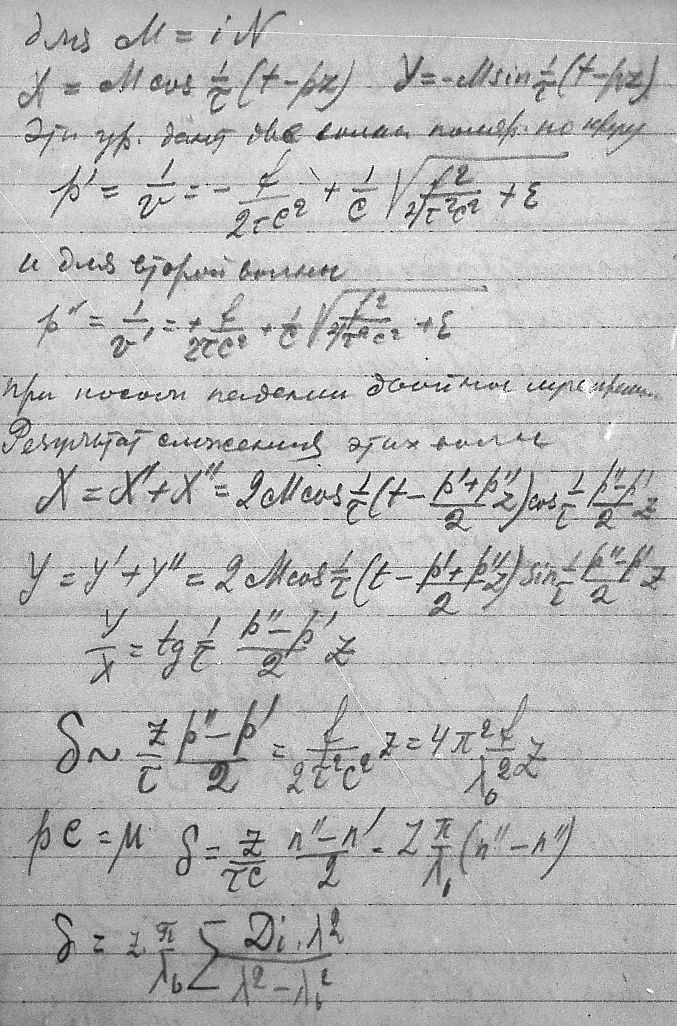 для M = iN
X = M cos 1/τ (t − pz)    Y = −M sin 1/τ (t − pz)
Эти ур. дают две волны поляр. по кругу
p' = 1/v = − f/2τc² + 1/c √(f²/4τ²c² + ε)
и для второй волны
p'' = 1/v' = + f/2τc² + 1/c √(f²/4τ²c² + ε)
при косом падении двойное
Результат сложения этих волн
X = X' + X'' = 2M cos 1/τ (t − (p'+p'')/2 z) cos 1/τ (p''−p')/2 z
Y = Y' + Y'' = 2M cos 1/τ (t − (p'+p'')/2 z) sin 1/τ (p''−p')/2 z
Y/X = tg 1/τ (p''−p')/2 z
δ ~ z/τ (p''−p')/2 = f/2τ²c² z = 4π² f/λ₀² z
pc = μ    δ = z/τc (n''−n')/2 = z π/λ₀ (n''−n'')
δ = z π/λ₀ Σ Dᵢ·λ²/(λ²−λ₀²)